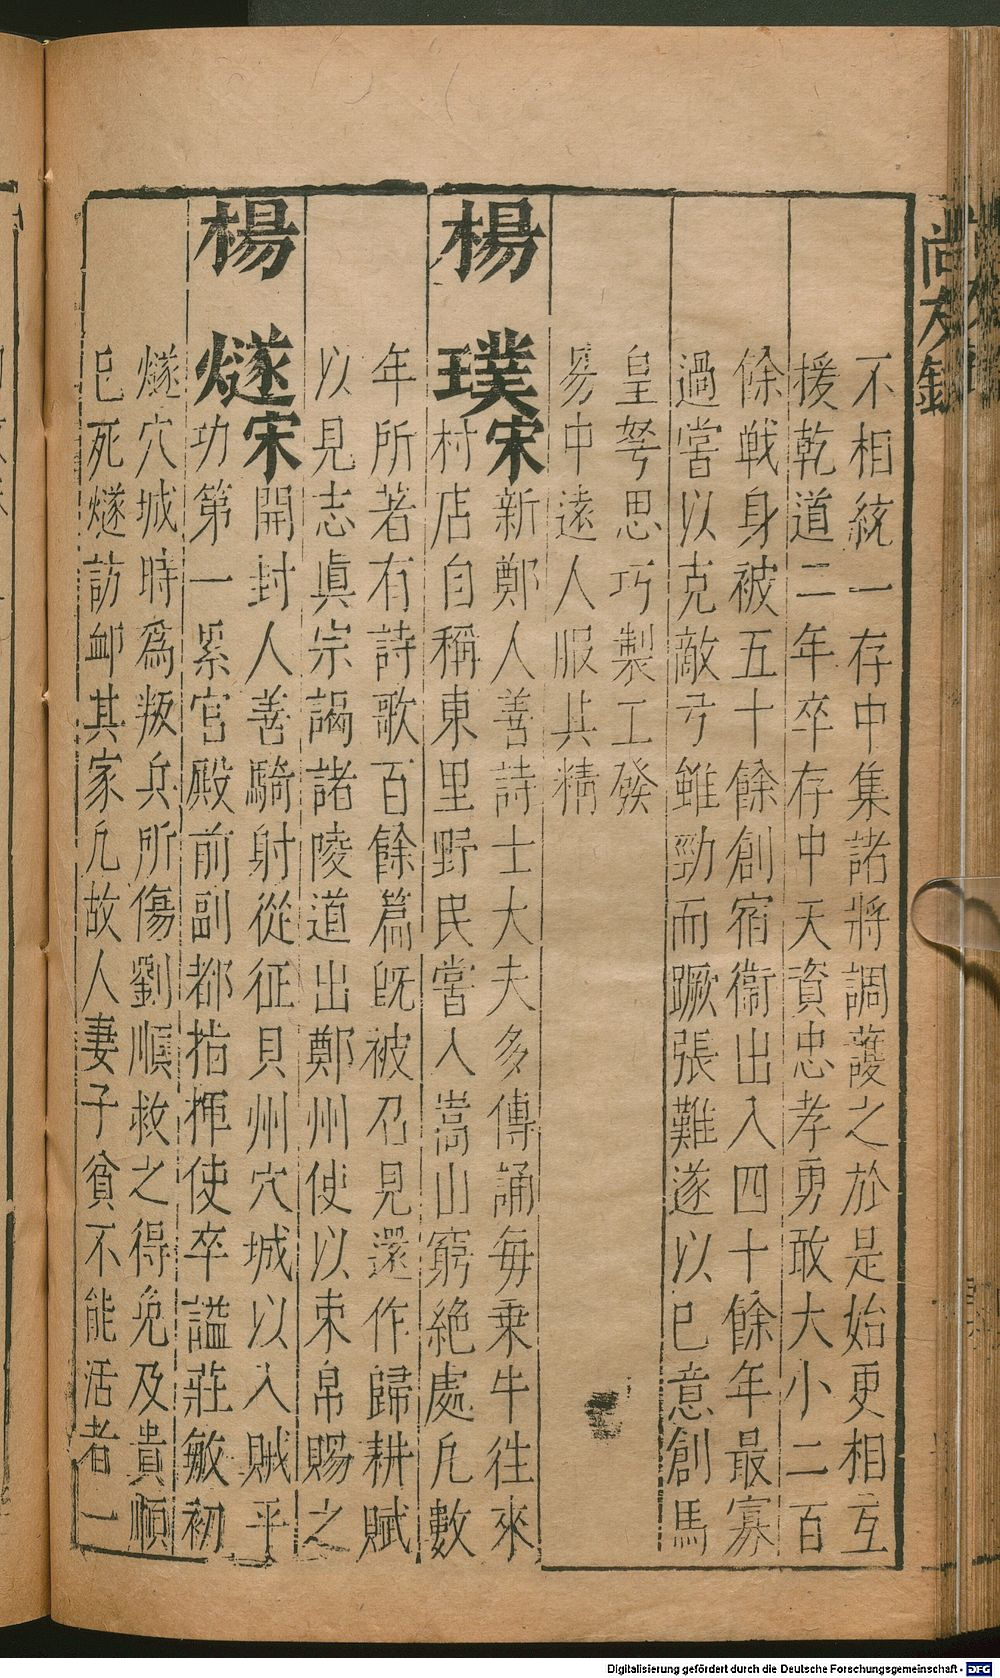 尚友錄
不相統一存中集諸將調護之於是始更相互
援乾道二年卒存中天資忠孝勇敢大小二百
餘戰身被五十餘創宿衞出入四十餘年最寡
過嘗以克敵弓雖勁而蹶張難遂以已意創馬
皇弩思巧製工發
易中遠人服其精
楊璞宋新鄭人善詩士大夫多傳誦每乗牛往來
村店自稱東里野民嘗入嵩山窮絶處凢數
年所著有詩歌百餘篇旣被召見還作歸耕賦
以見志眞宗謁諸陵道出鄭州使以束帛賜之
楊燧宋開封人善騎射從征貝州穴城以入賊平
功第一累官殿前副都指揮使卒謚莊敏初
燧穴城時爲叛兵所傷劉順救之得免及貴順
巳死燧訪䘏其家凢故人妻子貧不能活者一
Digitalisierung gefördert durch die Deutsche Forschungsgemeinschaft - DFG